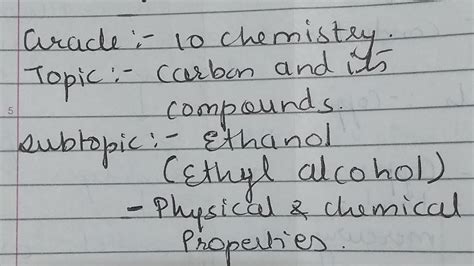 Grade:- 10 chemistry.
Topic:- Carbon and its
compounds.
subtopic:- Ethanol
(Ethyl alcohol)
- Physical & chemical
Properties.
5